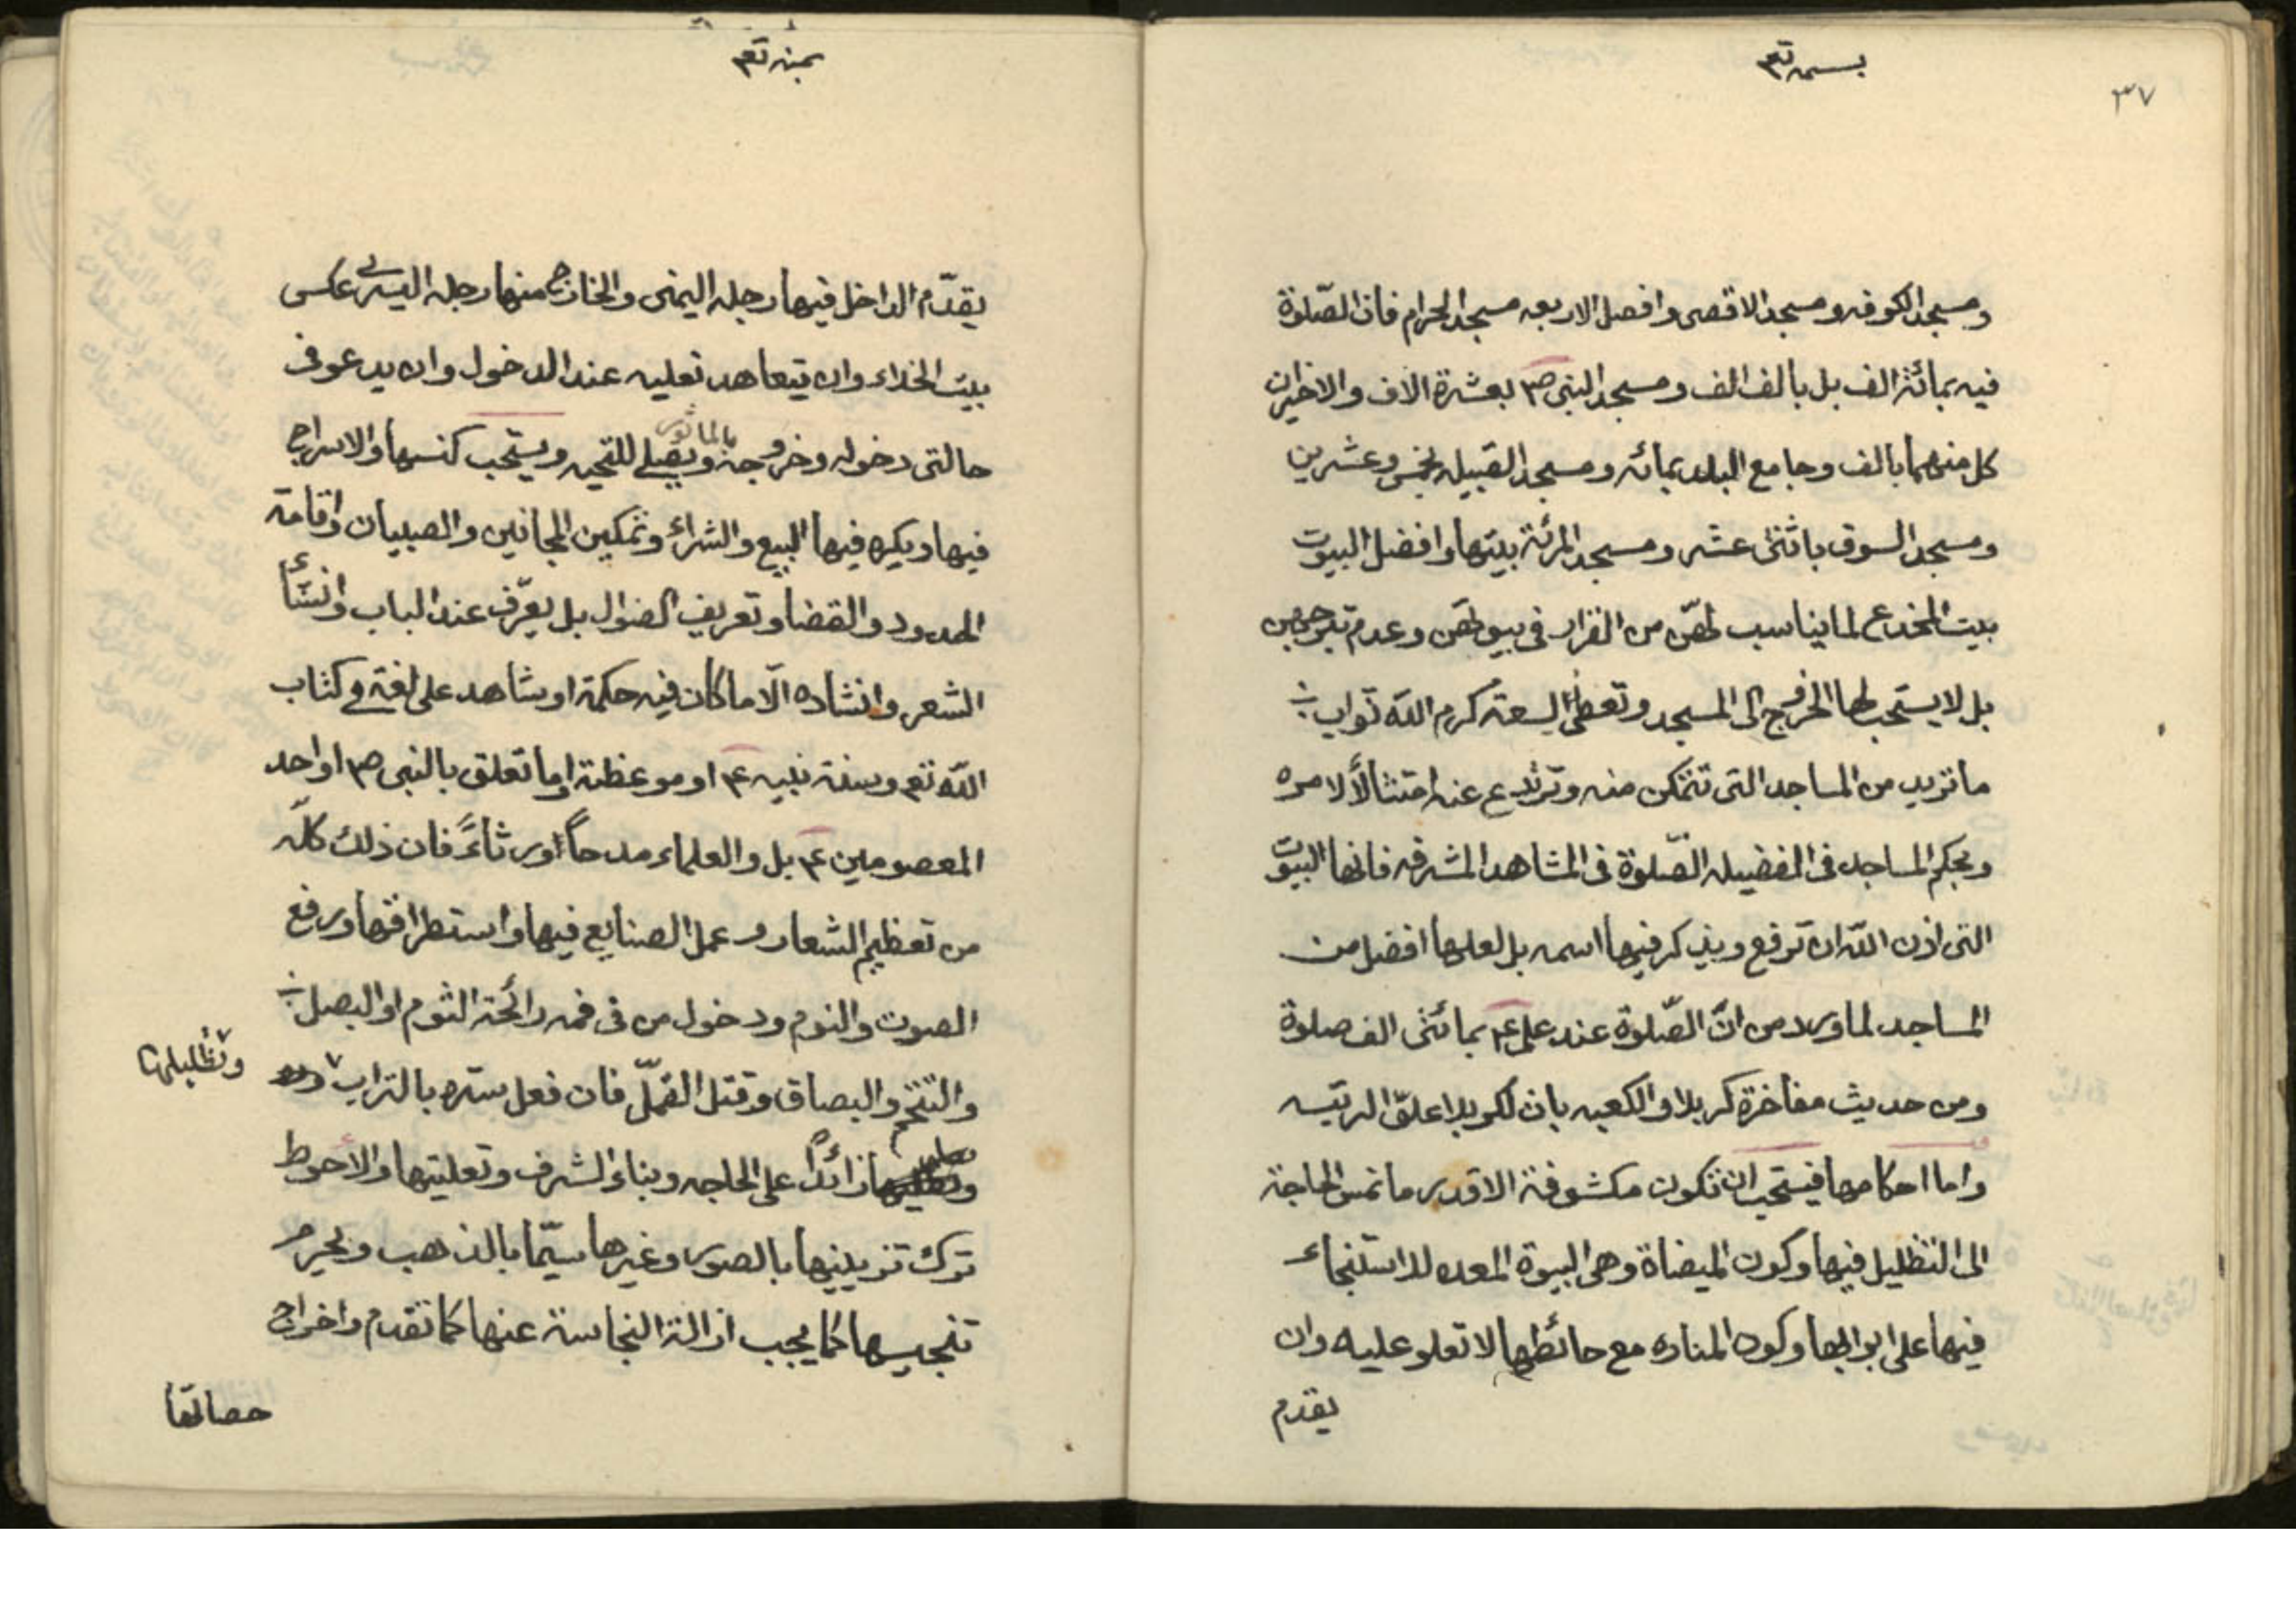 ٣٧
بسمه تع
ومسجد الكوفه ومسجد الاقصى وافضل الاربعه مسجد الحرام فان الصّلوة
فيه بمائة الف بل بالف الف ومسجد النبى ص بعشرة الاف والاخيران
كل منهما بالف وجامع البلد بمائه ومسجد القبيله بخمس وعشرين
ومسجد السوق باثنى عشر ومسجد المرئة بيتها وافضل البيوت
بيت المخدع لما يناسب لهنّ من القرار فى بيوتهن وعدم تبرجهن
بل لا يستحب لها الخروج الى المسجد وتعطى لسعة كرم الله ثواب
ما تريد من المساجد التى تتمكن منه وترتدع عنه امتثالًا لامره
وبحكم المساجد فى الفضيله الصّلوة فى المشاهد المشرفه فانها البيوت
التى اذن الله ان ترفع ويذكر فيها اسمه بل لعلها افضل من
المساجد لما ورد من انّ الصّلوة عند على ع بمائتى الف صلوة
ومن حديث مفاخرة كربلا والكعبه بان لكربلا علوّ الرتبه
واما احكامها فيستحب ان تكون مكشوفة الا قدر ما تمس الحاجة
الى التظليل فيها وكون الميضاة وهى البيوة المعده للاستنجاء
فيها على ابوابها وكون المناره مع حائطها لا تعلو عليه وان
يقدم
بمنه تع
يقدّم الداخل فيها رجله اليمنى والخارج منها رجله اليسرى عكس
بيت الخلاء وان يتعاهد نعليه عند الدخول وان يدعو فى
حالتى دخوله وخروجه بالماثور ويصلى للتحيه ويستحب كنسها والاسراج
فيها ويكره فيها البيع والشراء وتمكين المجانين والصبيان واقامة
الحدود والقضا وتعريف الضوال بل يعرّف عند الباب وانشاء
الشعر وانشاده الّا ما كان فيه حكمة او شاهد على لغة فى كتاب
الله تع وسنة نبيه ع او موعظة او ما تعلق بالنبى ص او احد
المعصومين ع بل والعلماء مدحاً او رثاءً فان ذلك كلّه
من تعظيم الشعار وعمل الصنايع فيها واستطراقها ورفع
الصوت والنوم ودخول من فى فمه رائحة الثوم او البصل
والتنخم والبصاق وقتل القمّل فان فعل ستره بالتراب
وتظليلها
زائداً على الحاجه وبناء الشرف وتعليتها والاحوط
ترك تزيينها بالصور وغيرها سيّما بالذهب ويحرم
تنجيسها كما يجب ازالة النجاسة عنها كما تقدم واخراج
حصاتها